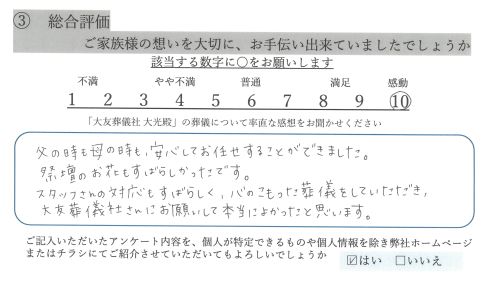 ③ 総合評価
ご家族様の想いを大切に、お手伝い出来ていましたでしょうか
該当する数字に○をお願いします
不満 やや不満 普通 満足 感動
1 2 3 4 5 6 7 8 9 10
「大友葬儀社 大光殿」の葬儀について率直な感想をお聞かせください
父の時も母の時も、安心してお任せすることができました。
祭壇のお花もすばらしかったです。
スタッフさんの対応もすばらしく、心のこもった葬儀をしていただき、
大友葬儀社さんにお願いして本当によかったと思います。
ご記入いただいたアンケート内容を、個人が特定できるものや個人情報を除き弊社ホームページ
またはチラシにてご紹介させていただいてもよろしいでしょうか ☑はい □いいえ